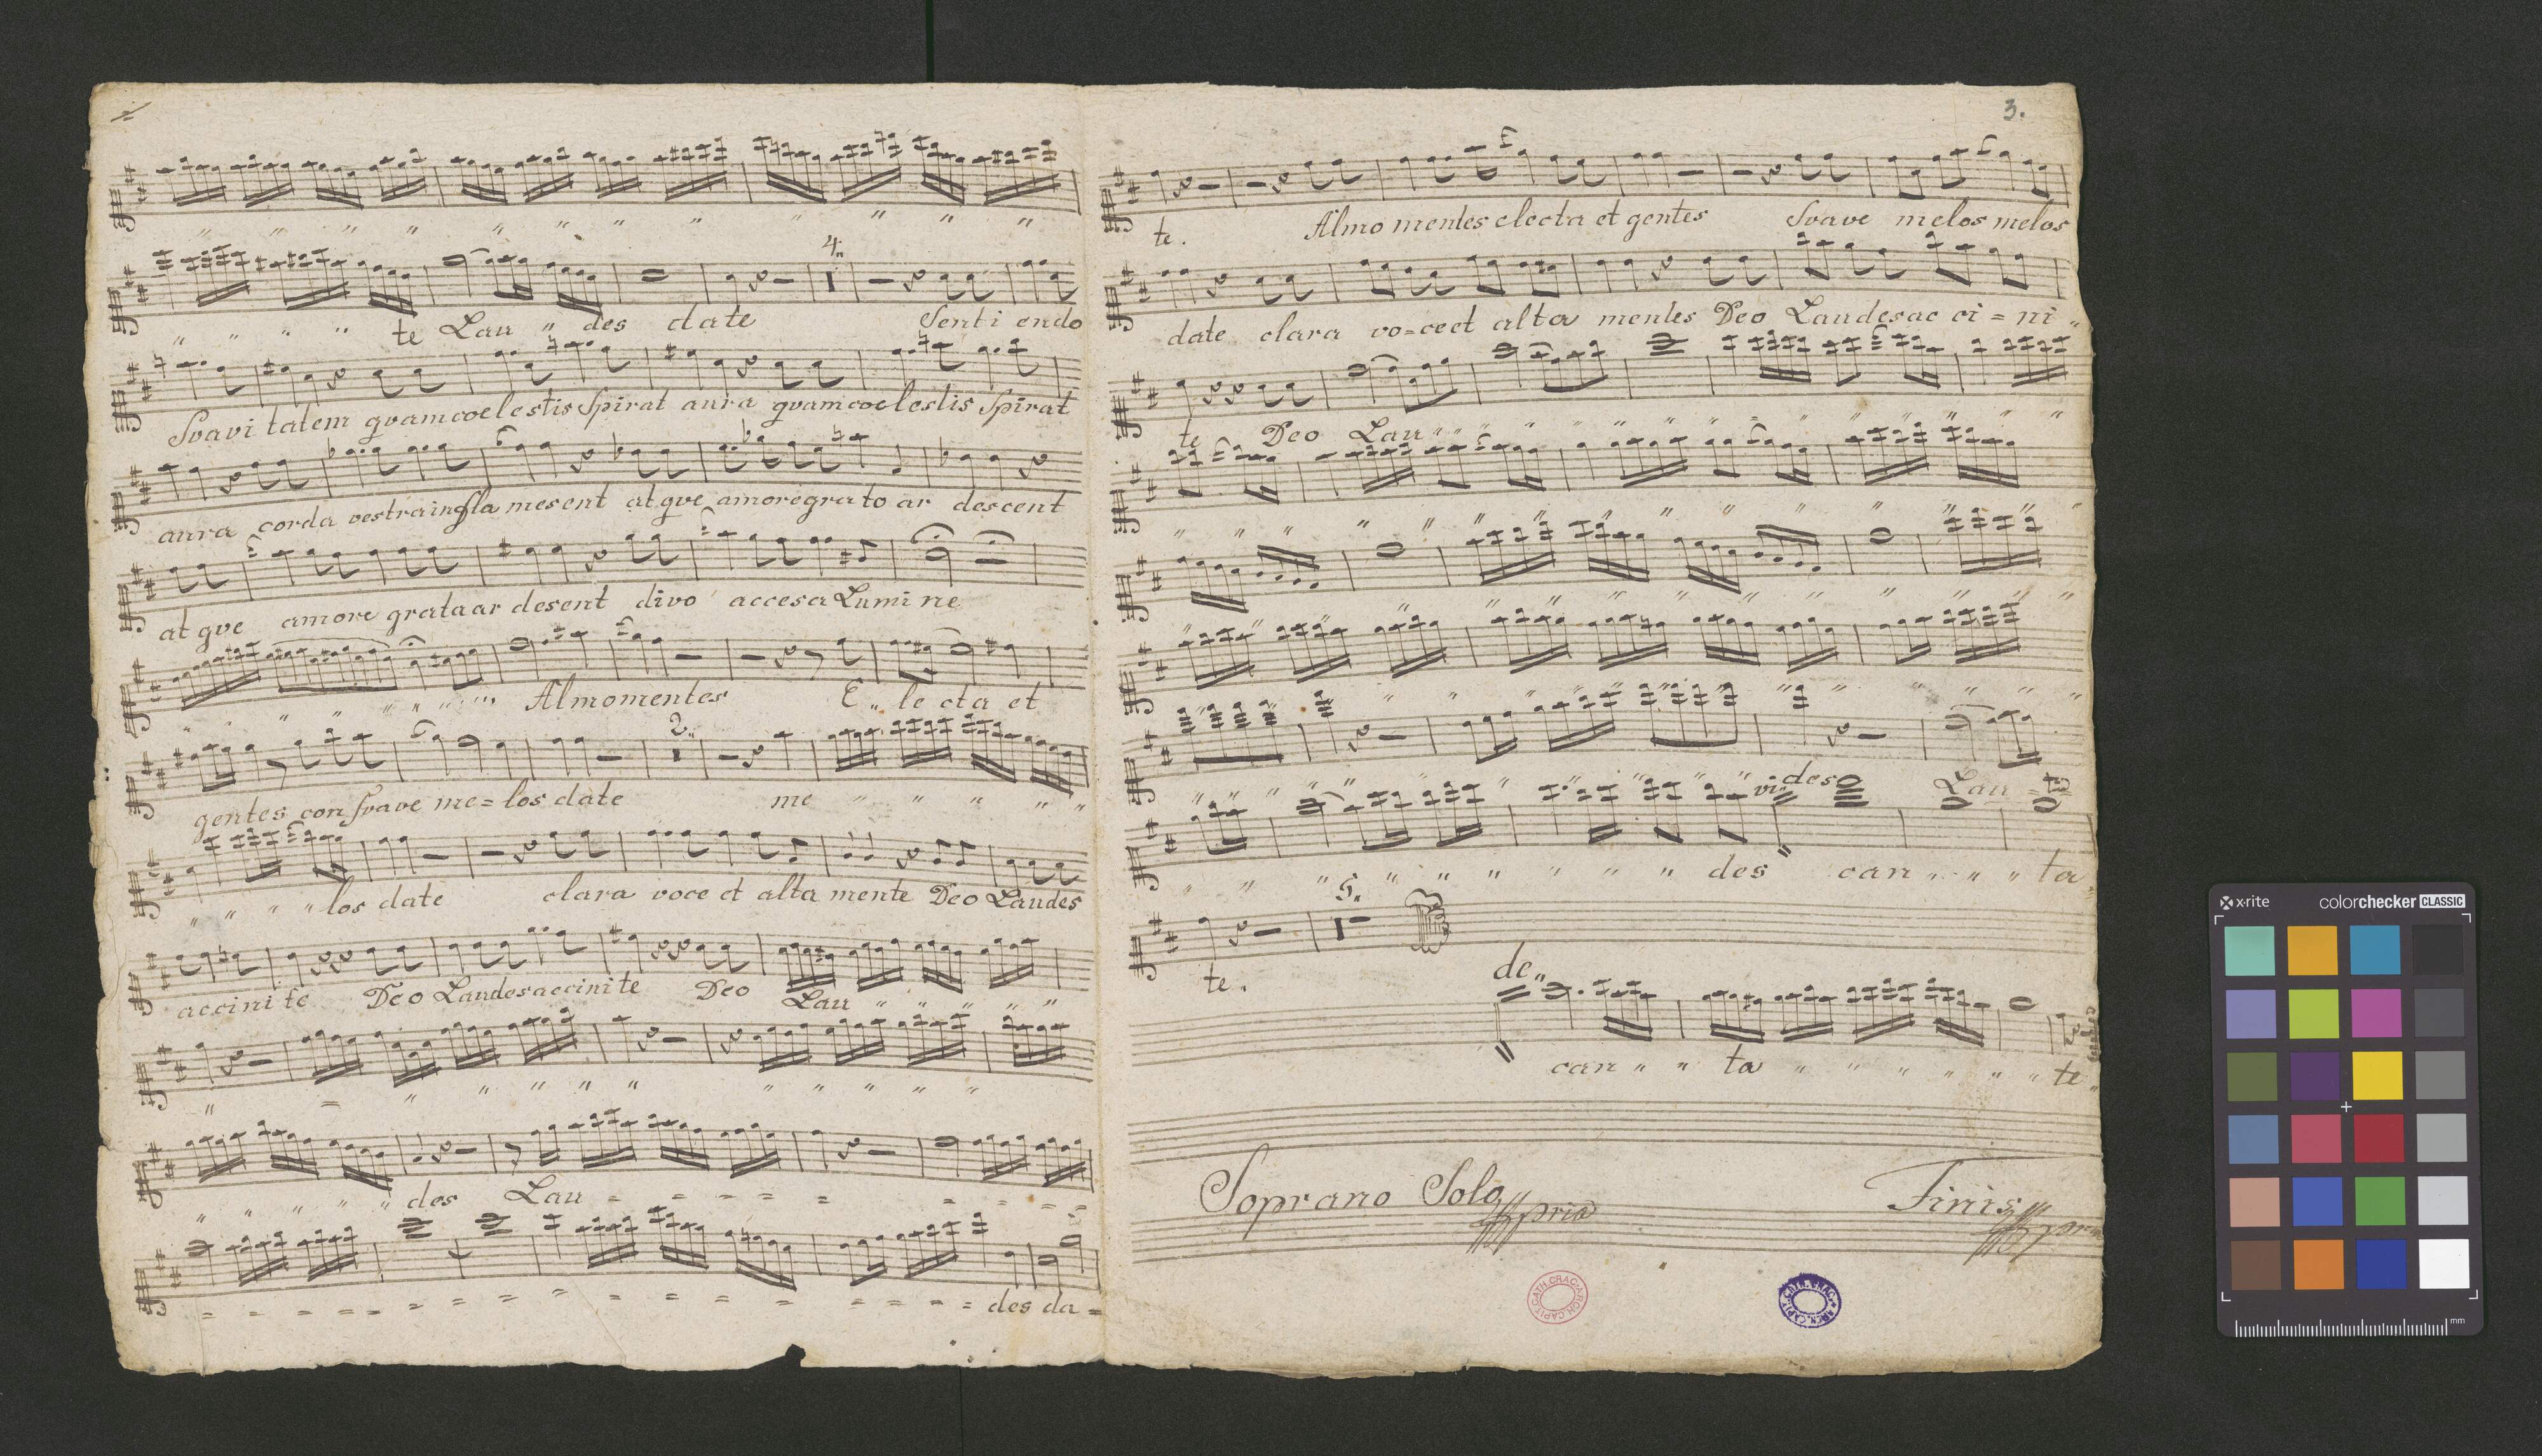 te Lau " des date Senti endo
4.
Suavi tatem quam coelestis Spirat aura quam coelestis Spirat
aura corda vestra inflamesent atque amore grato ar descent
atque amore grata ar desent divo accesa Lumine
Almo mentes E " le cta et
2.
gentes con Suave me = los date me
los date clara voce et alta mente Deo Laudes
accini te Deo Laudes accinite Deo Lau
des Lau
des da =
3.
te. Almo mentes electa et gentes Suave melos melos
date clara vo = ce et alta mentes Deo Laudes ac ci = ni "
te Deo Lau
vi: des
Lau
des can ta
5.
te.
de"
can " " ta te
Soprano Solo pria
Finis
x·rite colorchecker CLASSIC
mm